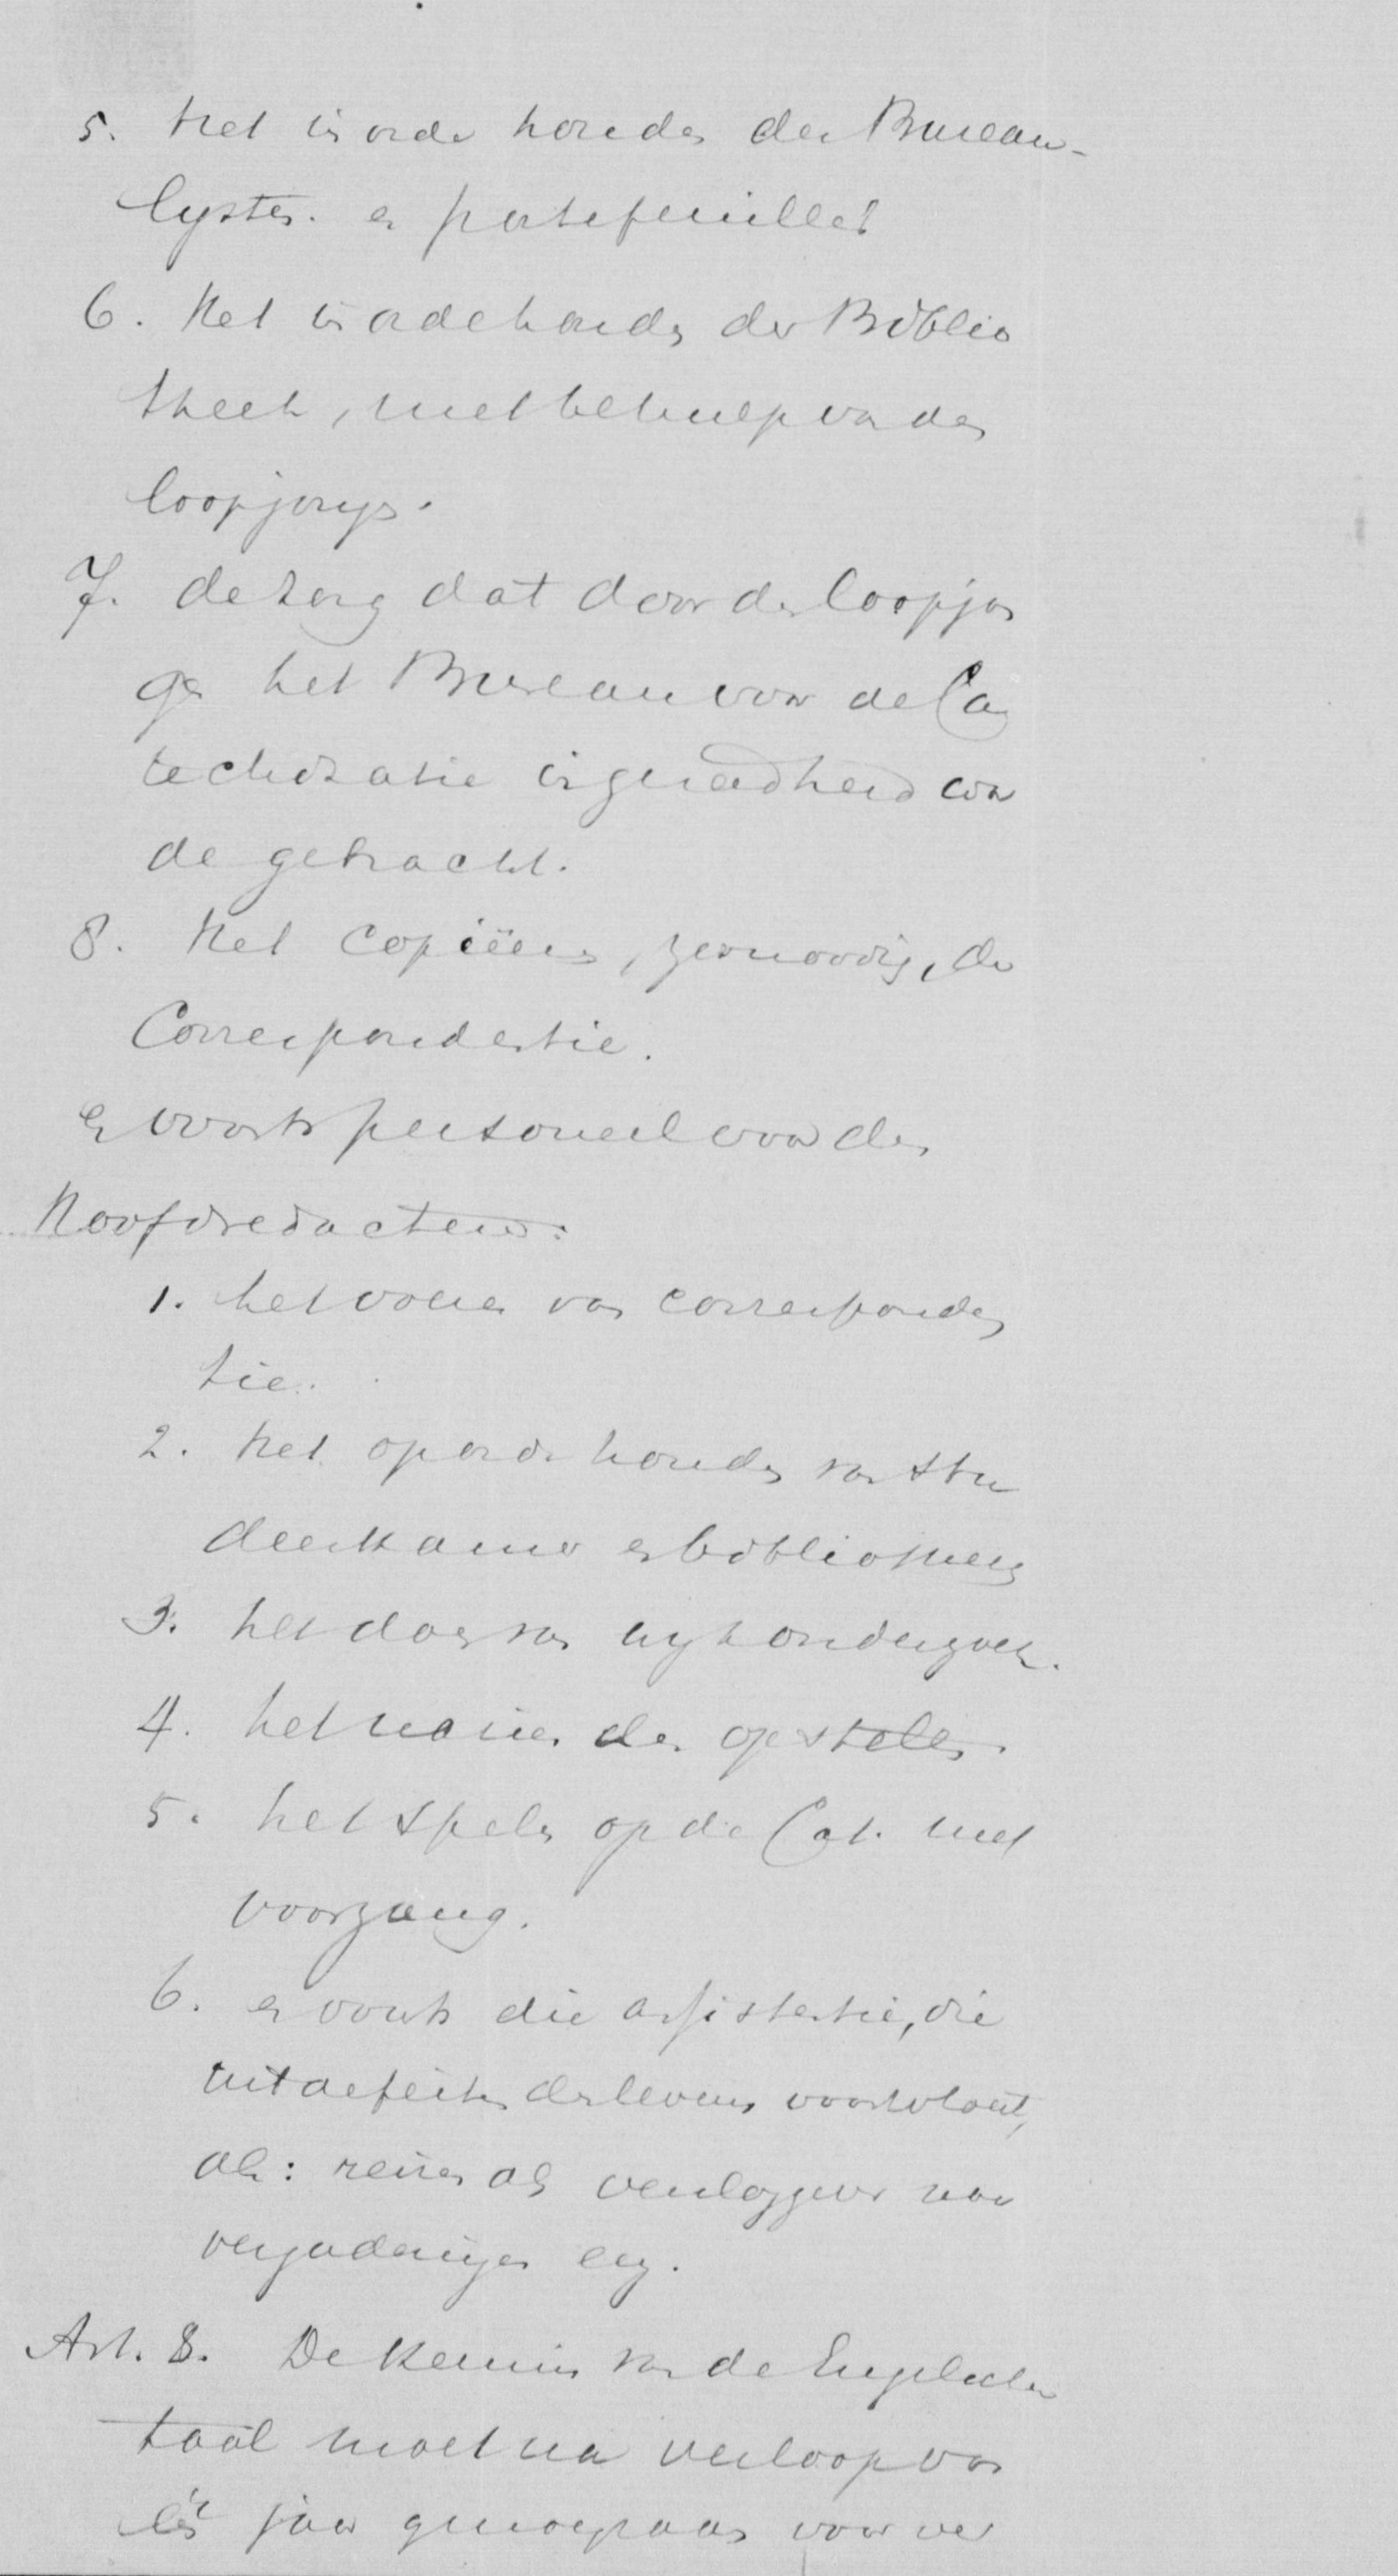 5. Het in orde houden der Bureau-
lijsten. en portefeuilles
6. Het in orde houden der Biblio
theek, met behulp van den
loopjongs.
7. de zorg dat door de loopjon
gen het Bureau voor de Ca
techisatie in gereedheid wor
de gebracht.
8. Het copiëeren, zoo noodig, der
Correspondentie.
En voorts personeel voor den
Hoofdredacteur:
1. het voeren van corresponden
tie.
2. het op orde houden van stu
deerkamer en bibliotheek
3. het doen van onderzoek.
4. het der opstellen.
5. het spelen op de Cat. met
voorzang.
6. en voorts die assistentie, die
uit de feiten des levens voortvloeit,
als: reizen als verslaggever naar
vergaderingen enz.
Art. 8. De kennis van de Engelsche
taal moet na verloop van
één jaar genoegzaam voor ver